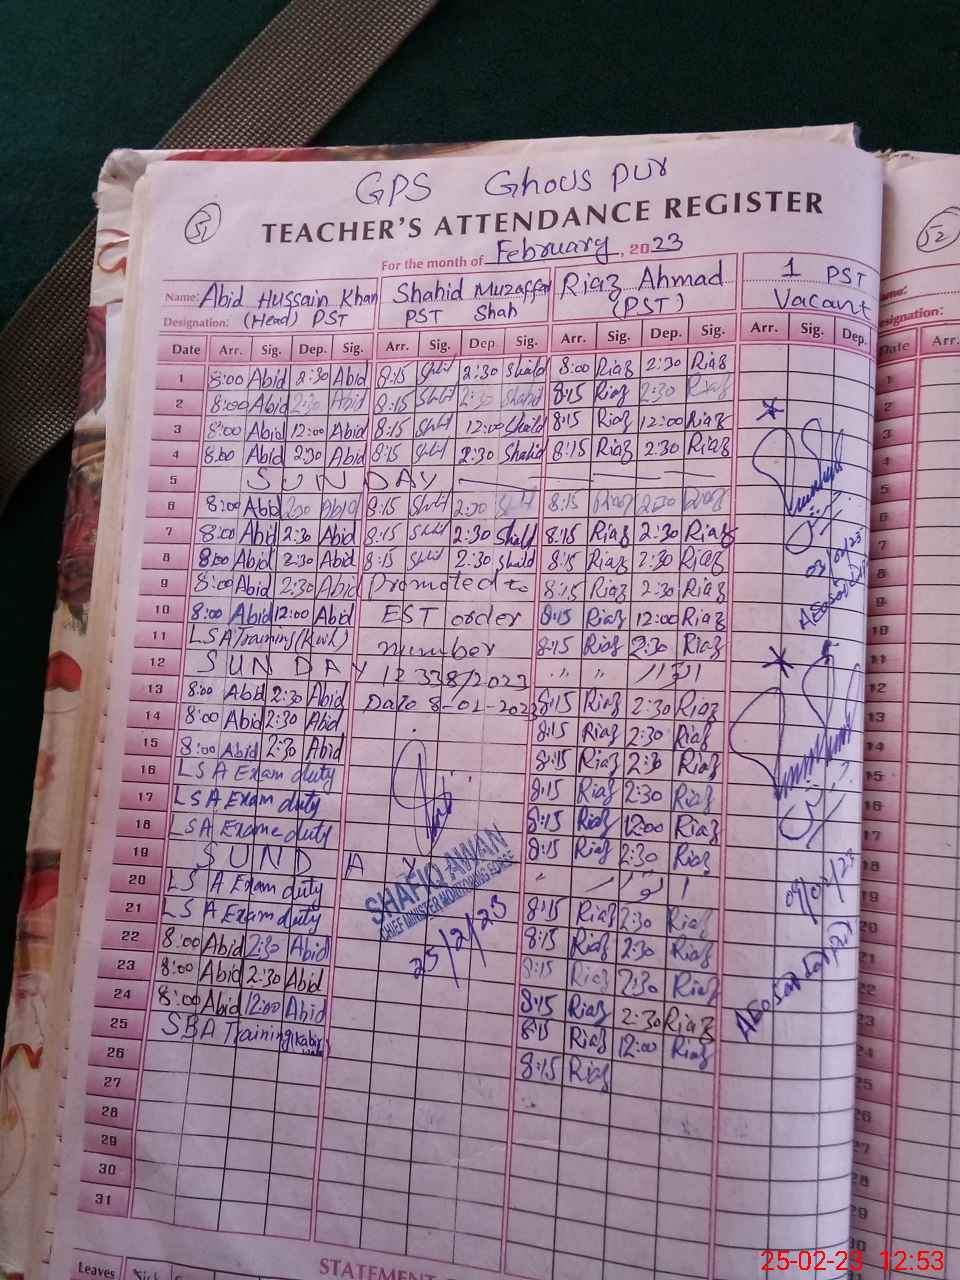 GPS Ghouspur
51
TEACHER'S ATTENDANCE REGISTER
52
For the month of February, 2023
Name: Abid Hussain Khan Shahid Muzaffar Shah Riaz Ahmad 1 PST
Designation: (Head) PST PST (PST) Vacant
Date Arr. Sig. Dep. Sig. Arr. Sig. Dep. Sig. Arr. Sig. Dep. Sig. Arr. Sig. Dep.
1 8:00 Abid 2:30 Abid 8:15 Shahid 2:30 Shahid 8:00 Riaz 2:30 Riaz
2 8:00 Abid 2:30 Abid 8:15 Shahid 2:30 Shahid 8:15 Riaz 2:30 Riaz
3 8:00 Abid 12:00 Abid 8:15 Shahid 12:00 Shahid 8:15 Riaz 12:00 Riaz
4 8:00 Abid 2:30 Abid 8:15 Shahid 2:30 Shahid 8:15 Riaz 2:30 Riaz
5 SUNDAY
6 8:00 Abid 2:30 Abid 8:15 Shahid 2:30 Shahid 8:15 Riaz 2:30 Riaz
7 8:00 Abid 2:30 Abid 8:15 Shahid 2:30 Shahid 8:15 Riaz 2:30 Riaz
8 8:00 Abid 2:30 Abid 8:15 Shahid 2:30 Shahid 8:15 Riaz 2:30 Riaz
9 8:00 Abid 2:30 Abid Promoted to 8:15 Riaz 2:30 Riaz
10 8:00 Abid 12:00 Abid EST order 8:15 Riaz 12:00 Riaz
11 LSA Training number 8:15 Riaz 2:30 Riaz
12 SUNDAY 12338/2023
13 8:00 Abid 2:30 Abid Date 8-02-2023 8:15 Riaz 2:30 Riaz
14 8:00 Abid 2:30 Abid 8:15 Riaz 2:30 Riaz
15 8:00 Abid 2:30 Abid 8:15 Riaz 2:30 Riaz
16 LSA Exam duty 8:15 Riaz 2:30 Riaz
17 LSA Exam duty 8:15 Riaz 12:00 Riaz
18 LSA Exame duty 8:15 Riaz 2:30 Riaz
19 SUNDAY
20 LS A Exam duty 8:15 Riaz 2:30 Riaz
21 LS A Exam duty 8:15 Riaz 2:30 Riaz
22 8:00 Abid 2:30 Abid 8:15 Riaz 2:30 Riaz
23 8:00 Abid 2:30 Abid 8:15 Riaz 2:30 Riaz
24 8:00 Abid 12:00 Abid 8:15 Riaz 12:00 Riaz
25 SBA Training 8:15 Riaz
26
27
28
29
30
31
SHAFIQ AWAN
CHIEF MINISTER MONITORING FORCE
25/2/23
03/02/23
09/02/23
Leaves
STATEMENT
25-02-23 12:53